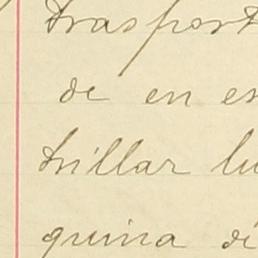 trasport
de en es
trillar lu
quina di